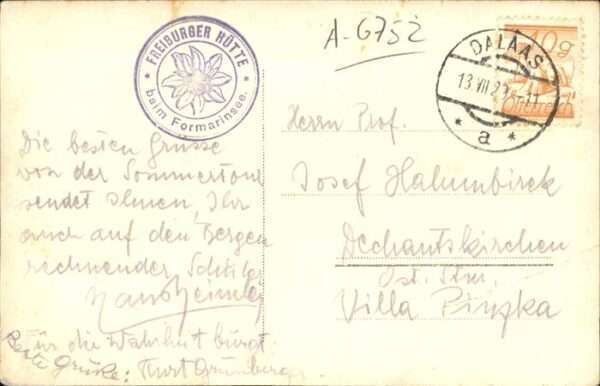 FREIBURGER HÜTTE
beim Formarinsee.
A-6752
DALAAS
13.VII.2
a
10g
Österreich
Die besten Grüsse
von der Sommertour
sendet Ihnen, Ihr
auch auf den Bergen
rechnender Schüler
Hans
Für die Wahrheit bürgt:
Beste Grüße: Kurt Grünberger
Herrn Prof.
Josef Halumbirek
Dechantskirchen
Ost. Stm.
Villa